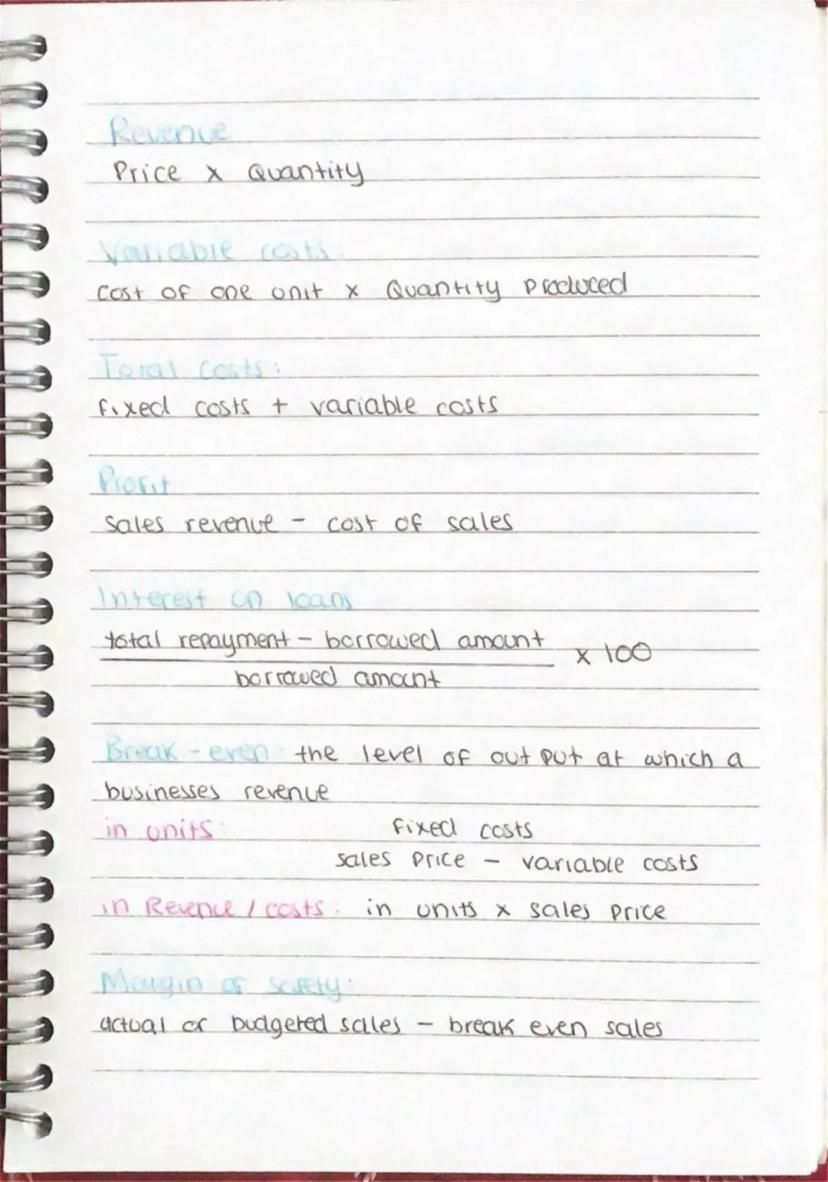 Revenue
Price x Quantity
Variable costs:
cost of one unit x Quantity Produced
Total costs:
fixed costs + variable costs
Profit
sales revenue - cost of sales
Interest on loans
total repayment - borrowed amount x 100
borrowed amount
Break-even: the level of out put at which a
businesses revenue
in units: fixed costs
sales price - variable costs
in Revenue / costs: in units x sales price
Margin of safety:
actual or budgeted sales - break even sales